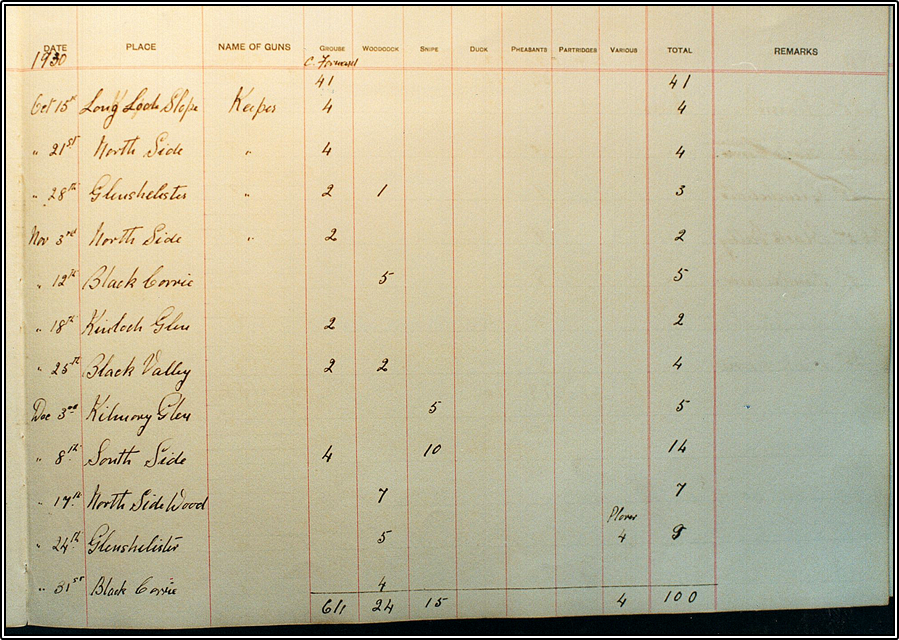 DATE PLACE NAME OF GUNS GROUSE WOODCOCK SNIPE DUCK PHEASANTS PARTRIDGES VARIOUS TOTAL REMARKS
1930 C. Forward
41 41
Oct 15th Long Loch Slope Keeper 4 4
" 21st North Side " 4 4
" 28th Glenshelister " 2 1 3
Nov 3rd North Side " 2 2
" 12th Black Corrie 5 5
" 18th Kinloch Glen 2 2
" 25th Black Valley 2 2 4
Dec 3rd Kilmory Glen 5 5
" 8th South Side 4 10 14
" 17th North Side Wood 7 7
Plover
" 24th Glenshelister 5 4 9
" 31st Black Corrie 4
61 24 15 4 100